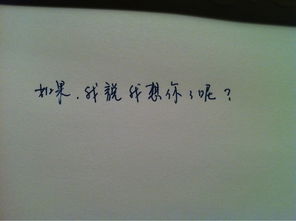 如果.我說我想你了呢？